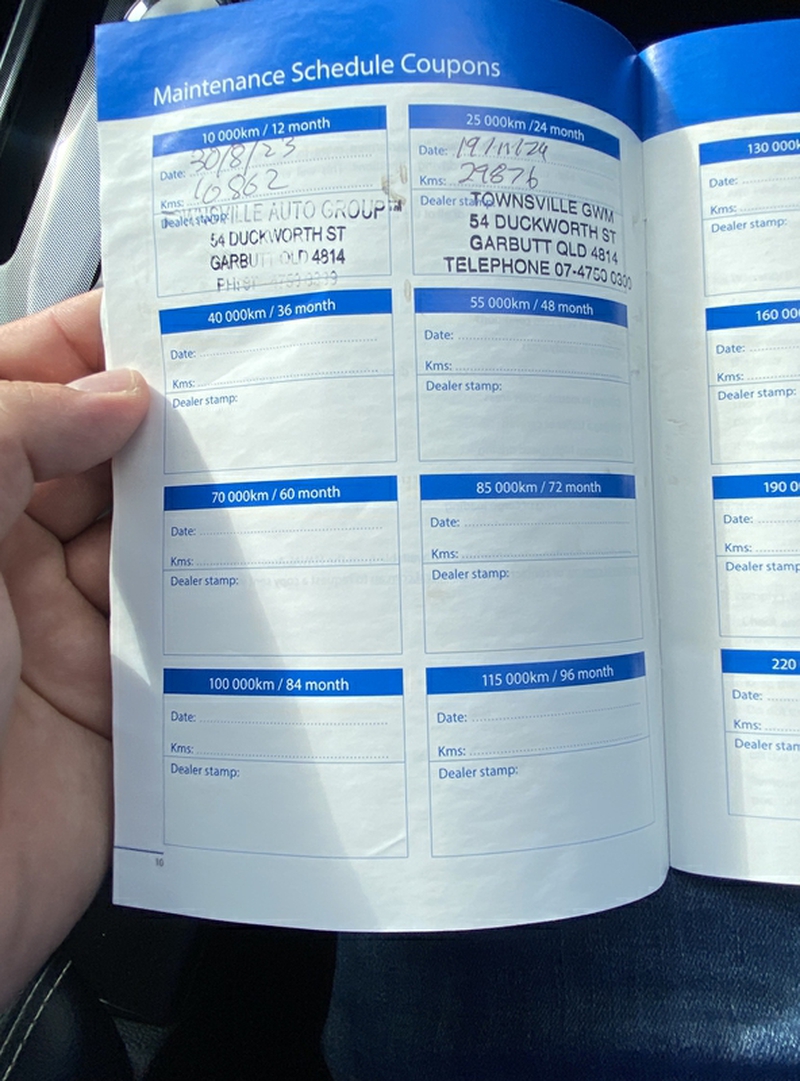 Maintenance Schedule Coupons
10 000km / 12 month
Date: 30/8/23
Kms: 10862
Dealer stamp:
TOWNSVILLE AUTO GROUP
54 DUCKWORTH ST
GARBUTT QLD 4814
25 000km /24 month
Date: 19/11/24
Kms: 29876
Dealer stamp:
TOWNSVILLE GWM
54 DUCKWORTH ST
GARBUTT QLD 4814
TELEPHONE 07-4750 0300
40 000km / 36 month
Date:
Kms:
Dealer stamp:
55 000km / 48 month
Date:
Kms:
Dealer stamp:
70 000km / 60 month
Date:
Kms:
Dealer stamp:
85 000km / 72 month
Date:
Kms:
Dealer stamp:
100 000km / 84 month
Date:
Kms:
Dealer stamp:
115 000km / 96 month
Date:
Kms:
Dealer stamp:
10
130 000k
Date:
Kms:
Dealer stamp:
160 00
Date:
Kms:
Dealer stamp:
190 0
Date:
Kms:
Dealer stamp
220
Date:
Kms:
Dealer stam